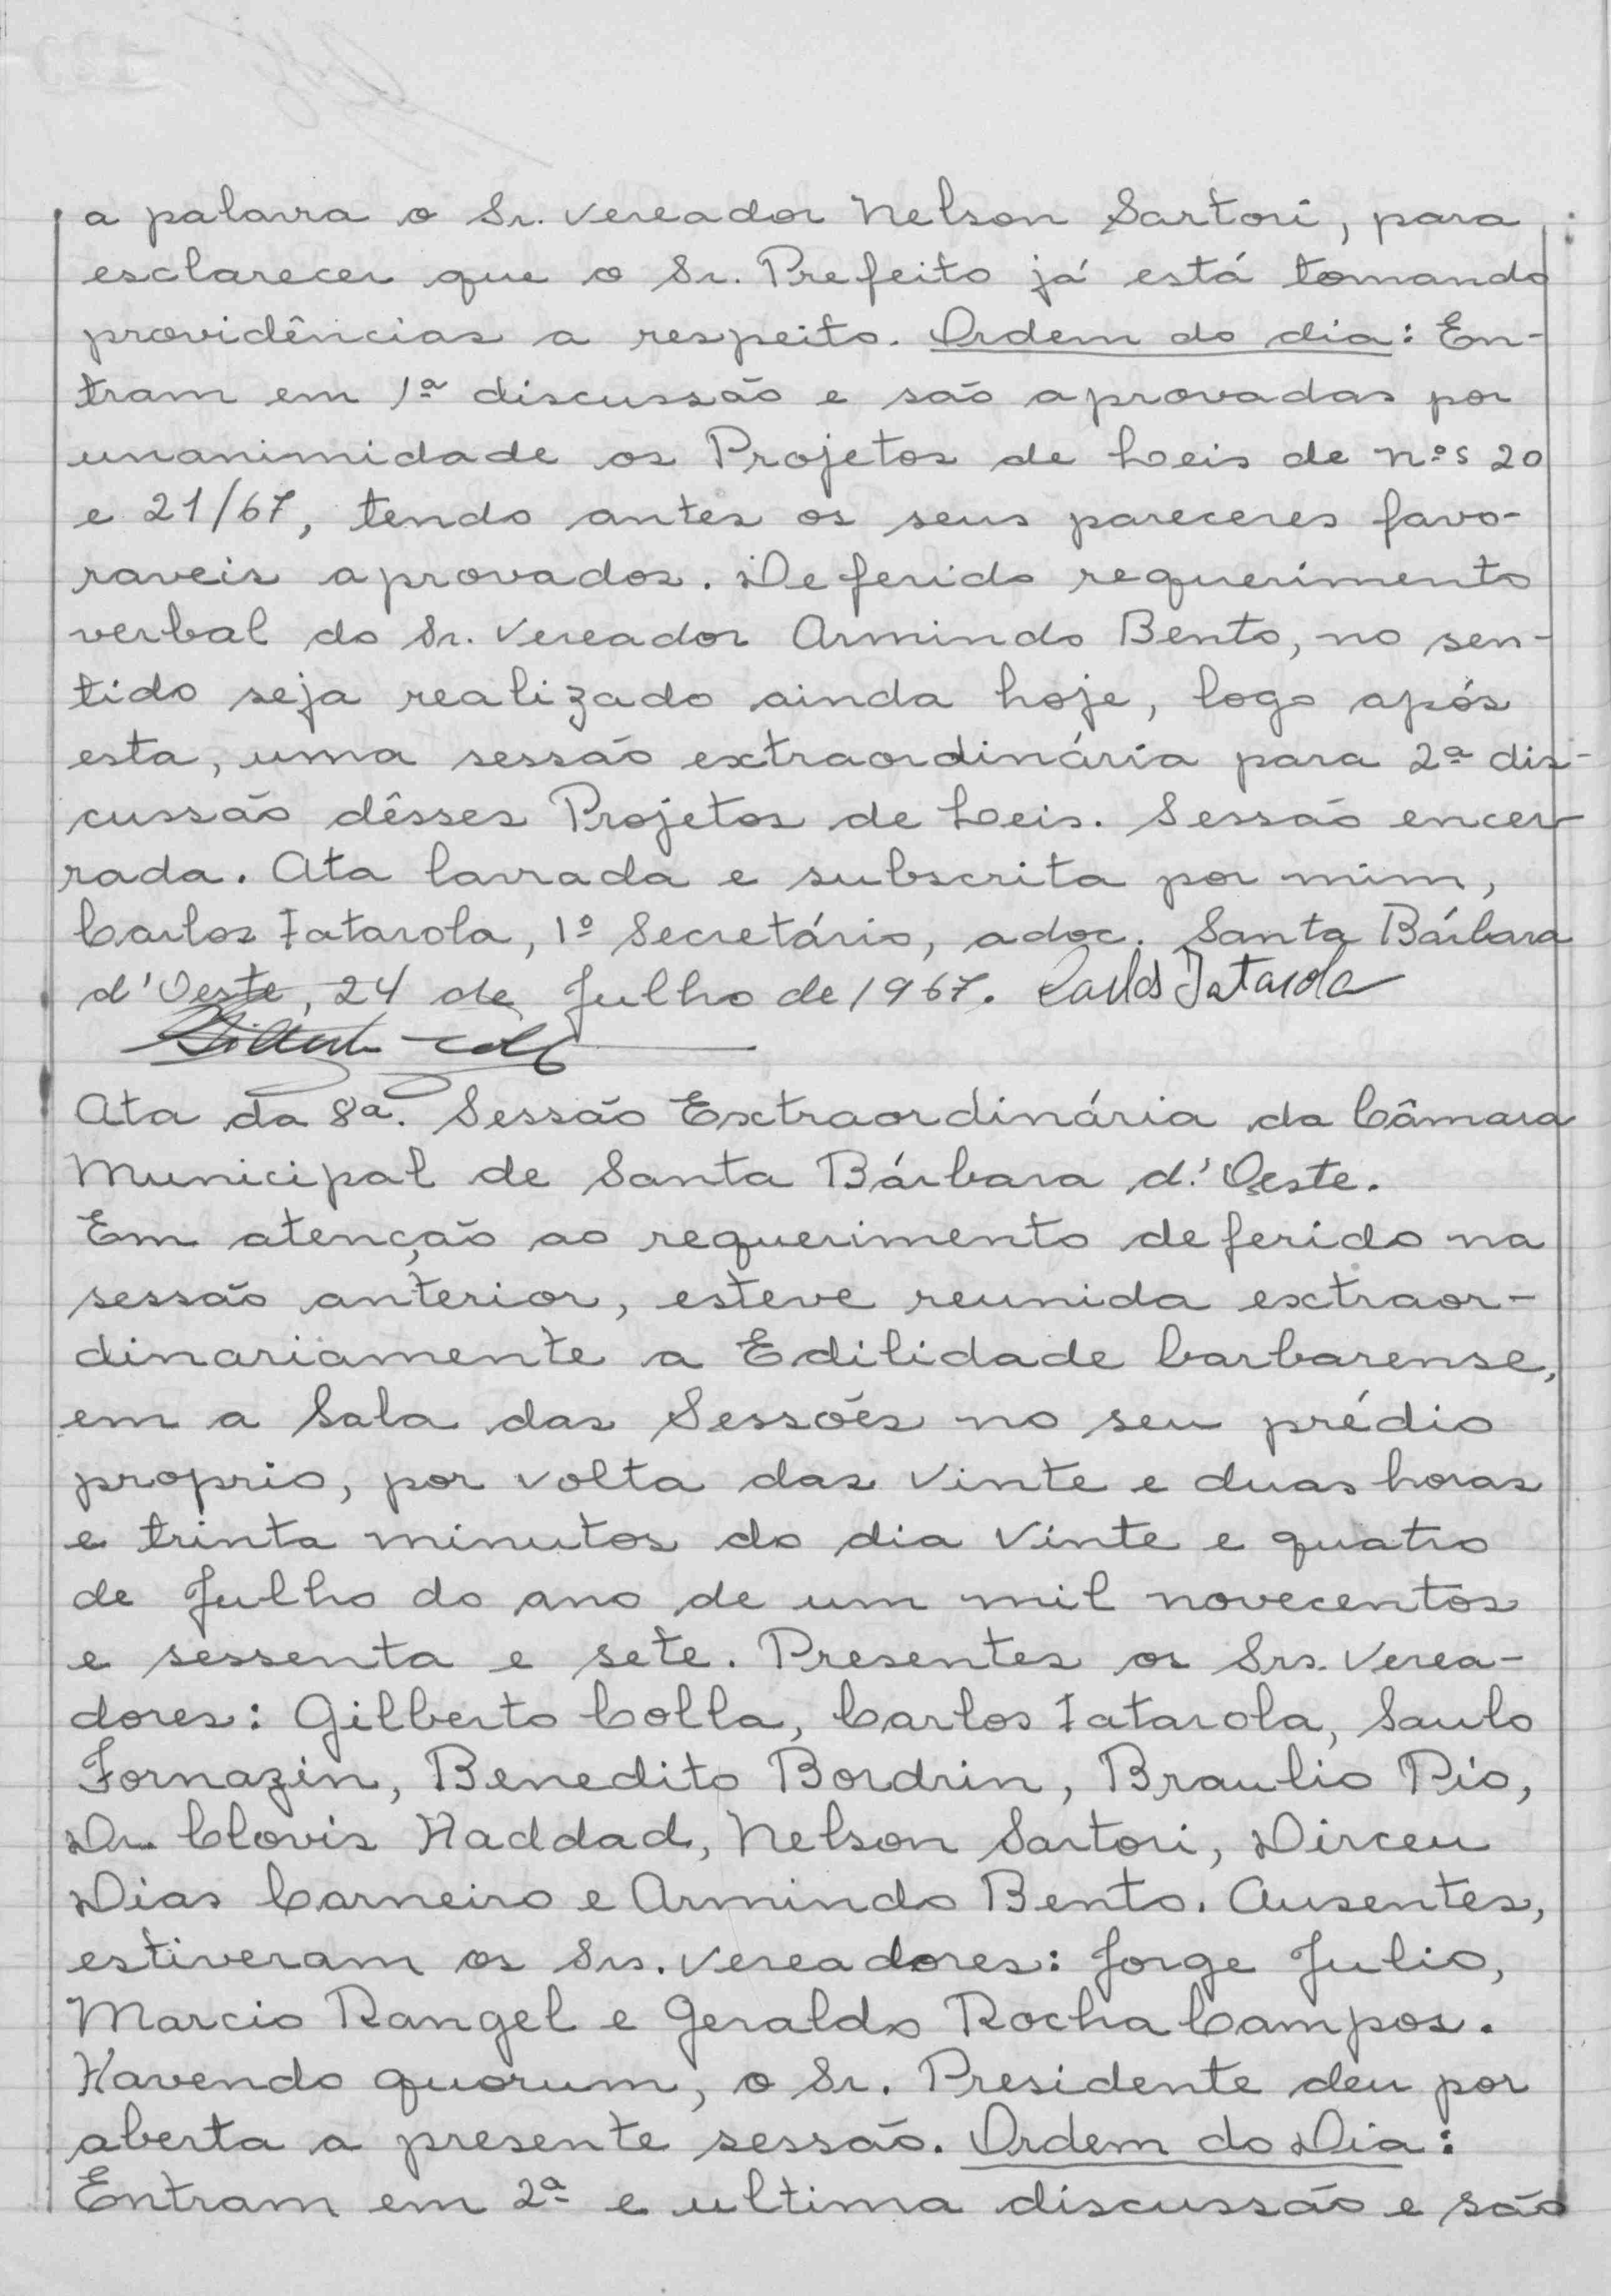 a palavra o Sr. Vereador Nelson Sartori, para
esclarecer que o Sr. Prefeito já está tomando
providências a respeito. Ordem do dia: En-
tram em 1ª discussão e são aprovadas por
unanimidade os Projetos de Leis de nºs 20
e 21/67, tendo antes os seus pareceres favo-
raveis aprovados. Deferido requerimento
verbal do Sr. Vereador Armindo Bento, no sen-
tido seja realizado ainda hoje, logo após
esta, uma sessão extraordinária para 2ª dis-
cussão dêsses Projetos de Leis. Sessão encer-
rada. Ata lavrada e subscrita por mim,
Carlos Fatarola, 1º Secretário, adoc. Santa Bárbara
d'Oeste, 24 de Julho de 1967. Carlos Fatarola
Ata da 8ª. Sessão Extraordinária da Câmara
Municipal de Santa Bárbara d'Oeste.
Em atenção ao requerimento deferido na
sessão anterior, esteve reunida extraor-
dinariamente a Edilidade barbarense,
em a Sala das Sessões no seu prédio
proprio, por volta das vinte e duas horas
e trinta minutos do dia vinte e quatro
de Julho do ano de um mil novecentos
e sessenta e sete. Presentes os Srs. Verea-
dores: Gilberto Colla, Carlos Fatarola, Saulo
Fornazin, Benedito Bordrin, Braulio Pio,
Dr. Clovis Haddad, Nelson Sartori, Dirceu
Dias Carneiro e Armindo Bento. Ausentes,
estiveram os Srs. Vereadores: Jorge Julio,
Marcio Rangel e Geraldo Rocha Campos.
Havendo quorum, o Sr. Presidente deu por
aberta a presente sessão. Ordem do Dia:
Entram em 2ª e ultima discussão e são